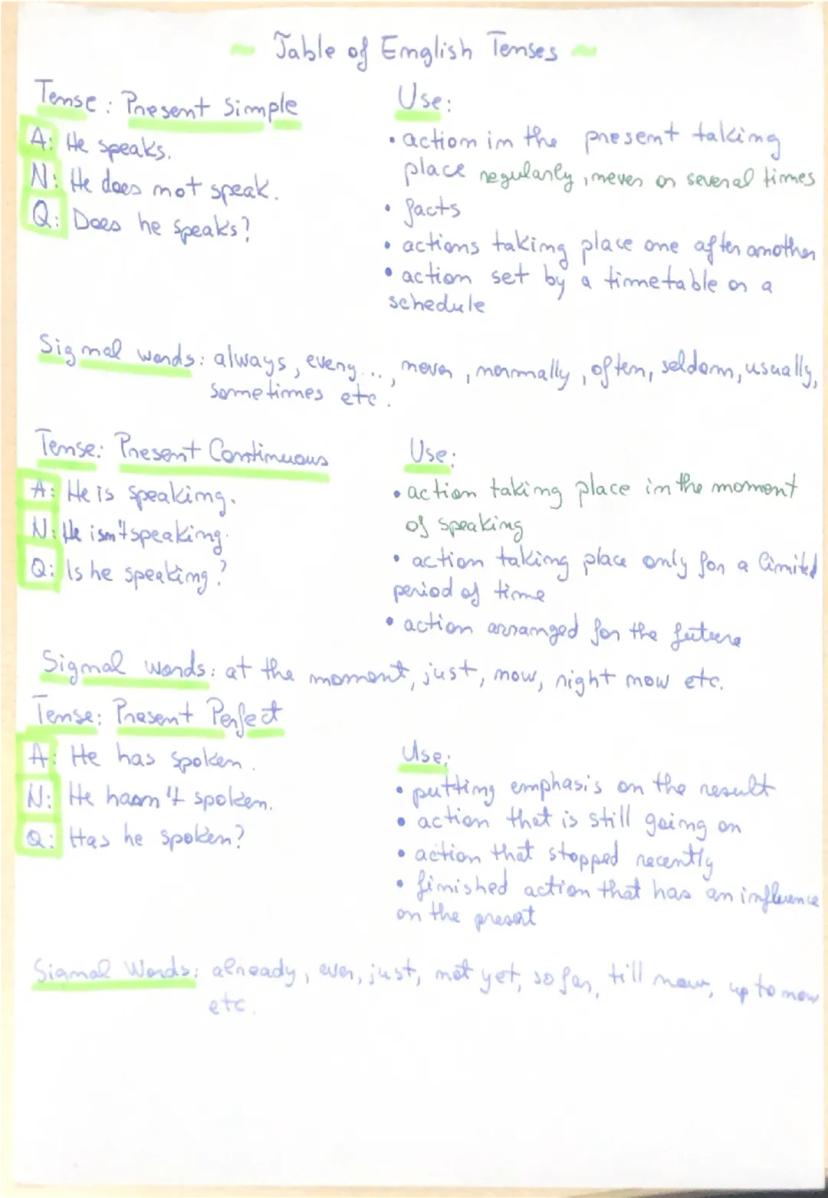 ~ Table of English Tenses ~
Tense: Present Simple
A: He speaks.
N: He does not speak.
Q: Does he speaks?
Use:
• action in the present taking
place regularly, never or several times
• facts
• actions taking place one after another
• action set by a timetable or a
schedule
Signal words: always, every..., never, normally, often, seldom, usually,
sometimes etc.
Tense: Present Continuous
A: He is speaking.
N: He isn't speaking.
Q: Is he speaking?
Use:
• action taking place in the moment
of speaking
• action taking place only for a limited
period of time
• action arranged for the future
Signal words: at the moment, just, now, right now etc.
Tense: Present Perfect
A: He has spoken.
N: He hasn't spoken.
Q: Has he spoken?
Use:
• putting emphasis on the result
• action that is still going on
• action that stopped recently
• finished action that has an influence
on the present
Signal Words: already, ever, just, not yet, so far, till now, up to now
etc.